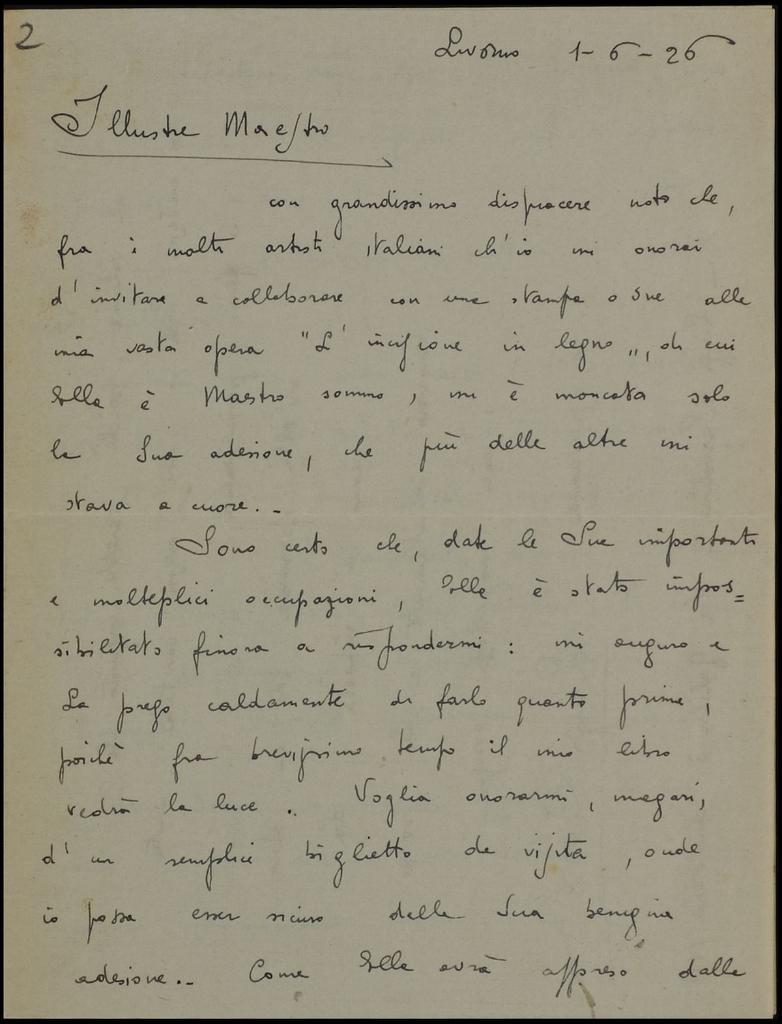 2
Livorno 1-6-26
Illustre Maestro
con grandissimo dispiacere noto che,
fra i molti artisti italiani ch'io mi onorai
d'invitare a collaborare con una stampa o due alla
mia vasta opera "L'incisione in legno", di cui
Ella è Maestro sommo, mi è mancata solo
la Sua adesione, che più delle altre mi
stava a cuore.-
Sono certo che, date le Sue importanti
e molteplici occupazioni, Ella è stato impos=
sibilitato finora a rispondermi: mi auguro e
La prego caldamente di farlo quanto prima,
poichè fra brevissimo tempo il mio libro
vedrà la luce.. Voglia onorarmi, magari,
d'un semplice biglietto da visita, onde
io possa esser sicuro della Sua benigna
adesione.- Come Ella avrà appreso dalla